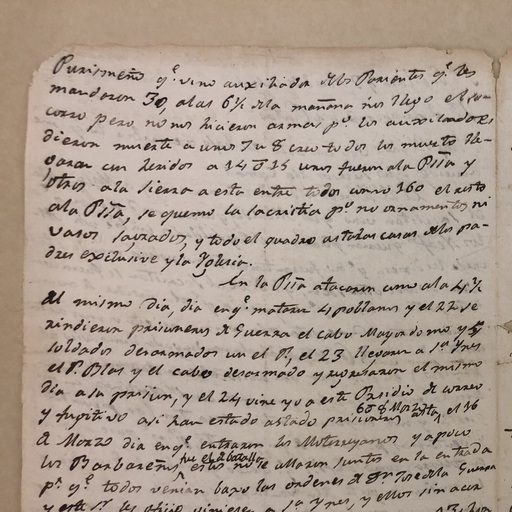 Purisimeño q.e vino auxiliador de los Parientes q.e les
mandaron 30, a las 6½ de la mañana nos llego el so-
corro pero no nos hicieron armas p.r los auxiliadores
dieron muerte a unos 7 u 8 creo todos los muerto lle-
garan con heridos a 14 o 15 unos fueron a la Pma y
otros a la Sierra a esta entre todos como 160 el resto
a la Pma, se quemo la sacristia p.o no ornamentos ni
vasos sagrados, y todo el quadro asta las casas de los pa-
dres exclusive y la Yglesia.
En la Pma atacaron como a las 4½
del mismo dia, dia en q.e mataron 4 poblanos y el 22 se
rindieron pricioneros de Guerra el cabo Mayordomo y
soldados desarmados con el P., el 23 llevaron a S.ta Ynes
el P. Blas y el cabo desarmado y regresaron el mismo
dia a la prision, y el 24 vine yo a este Presidio de correo
y fugitivo asi han estado estado prisioneros asta el 16
de Marzo dia en q.e entraron los Monterreyanos y a poco
los Barbareños estos no se allaron juntos en la entrada
p.r q.e todos venian baxo las ordenes de D.n Jose de la Guerra
y este S.r les viniesen a S.ta Ynes, y ellos sin acer